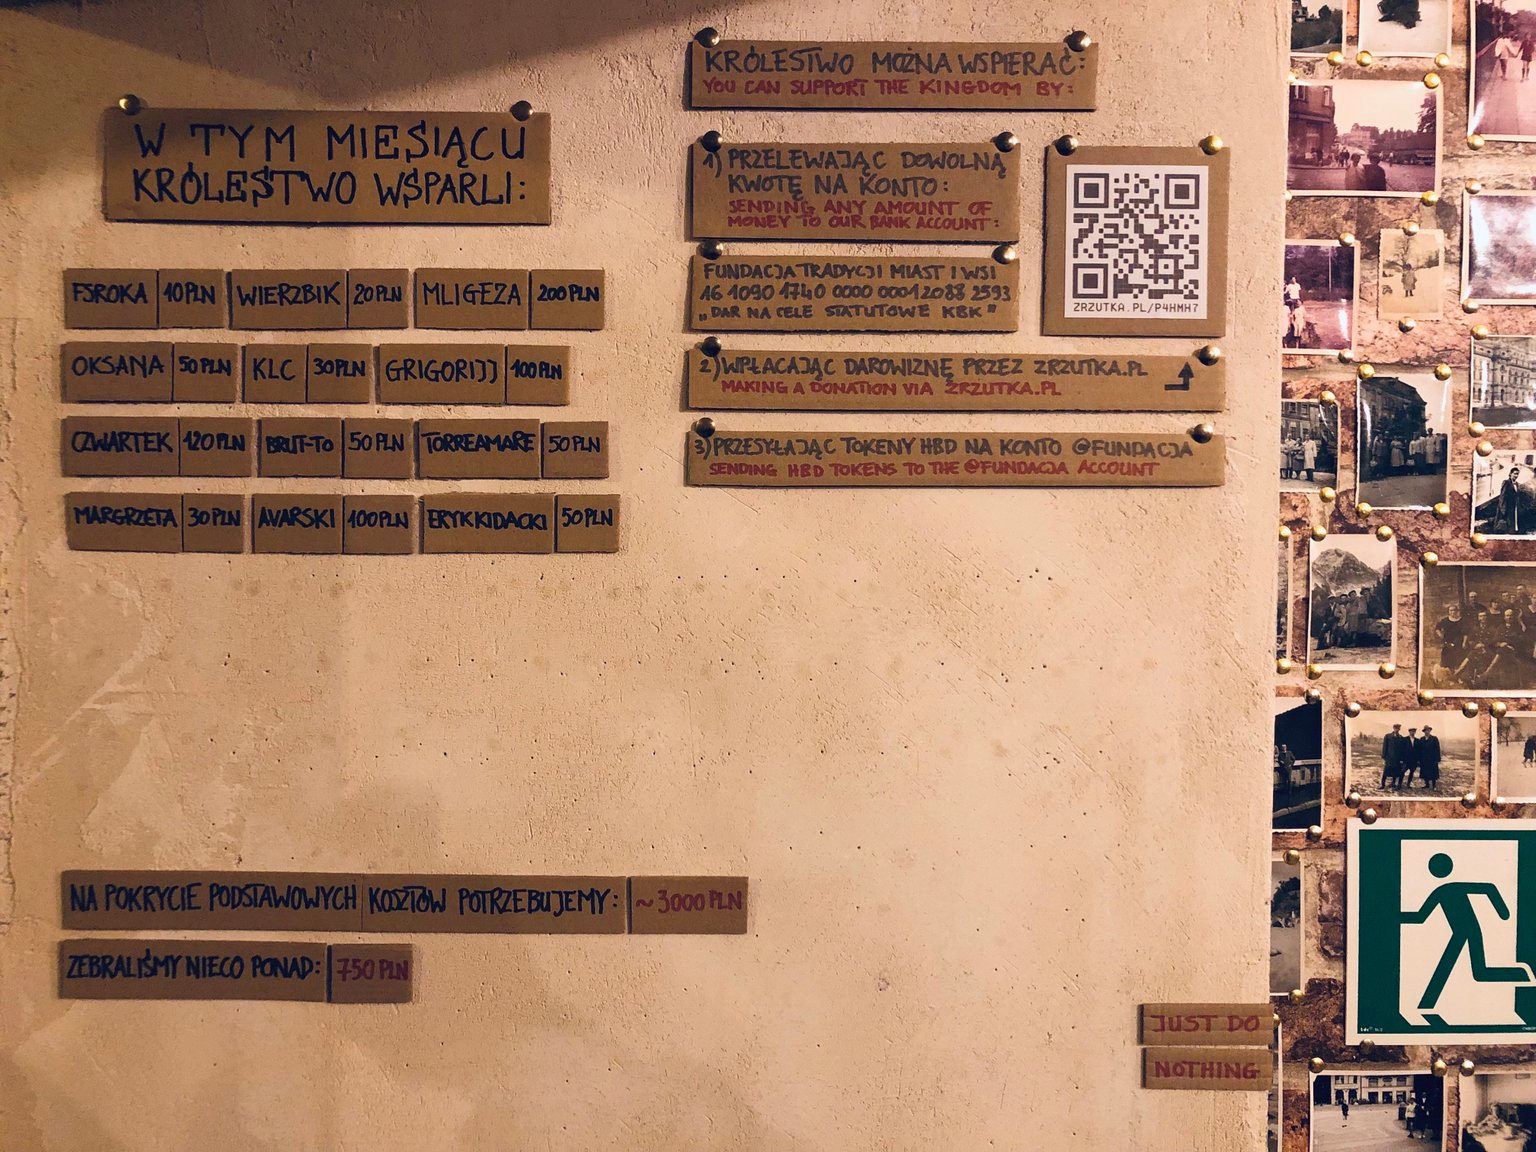 W TYM MIESIĄCU
KRÓLESTWO WSPARLI:
FSROKA 10 PLN WIERZBIK 20 PLN MLIGEZA 200 PLN
OKSANA 50 PLN KLC 30 PLN GRIGORIJJ 100 PLN
CZWARTEK 120 PLN BRUT-TO 50 PLN TORREAMARE 50 PLN
MARGRZETA 30 PLN AVARSKI 100 PLN ERYKKIDACKI 50 PLN
NA POKRYCIE PODSTAWOWYCH KOSZTÓW POTRZEBUJEMY: ~3000 PLN
ZEBRALIŚMY NIECO PONAD: 750 PLN
KRÓLESTWO MOŻNA WSPIERAĆ:
YOU CAN SUPPORT THE KINGDOM BY:
1) PRZELEWAJĄC DOWOLNĄ
KWOTĘ NA KONTO:
SENDING ANY AMOUNT OF
MONEY TO OUR BANK ACCOUNT:
FUNDACJA TRADYCJI MIAST I WSI
16 1090 1740 0000 0001 2088 2593
„DAR NA CELE STATUTOWE KBK"
ZRZUTKA.PL/P4HMH7
2) WPŁACAJĄC DAROWIZNĘ PRZEZ ZRZUTKA.PL
MAKING A DONATION VIA ZRZUTKA.PL
3) PRZESYŁAJĄC TOKENY HBD NA KONTO @FUNDACJA
SENDING HBD TOKENS TO THE @FUNDACJA ACCOUNT
JUST DO
NOTHING